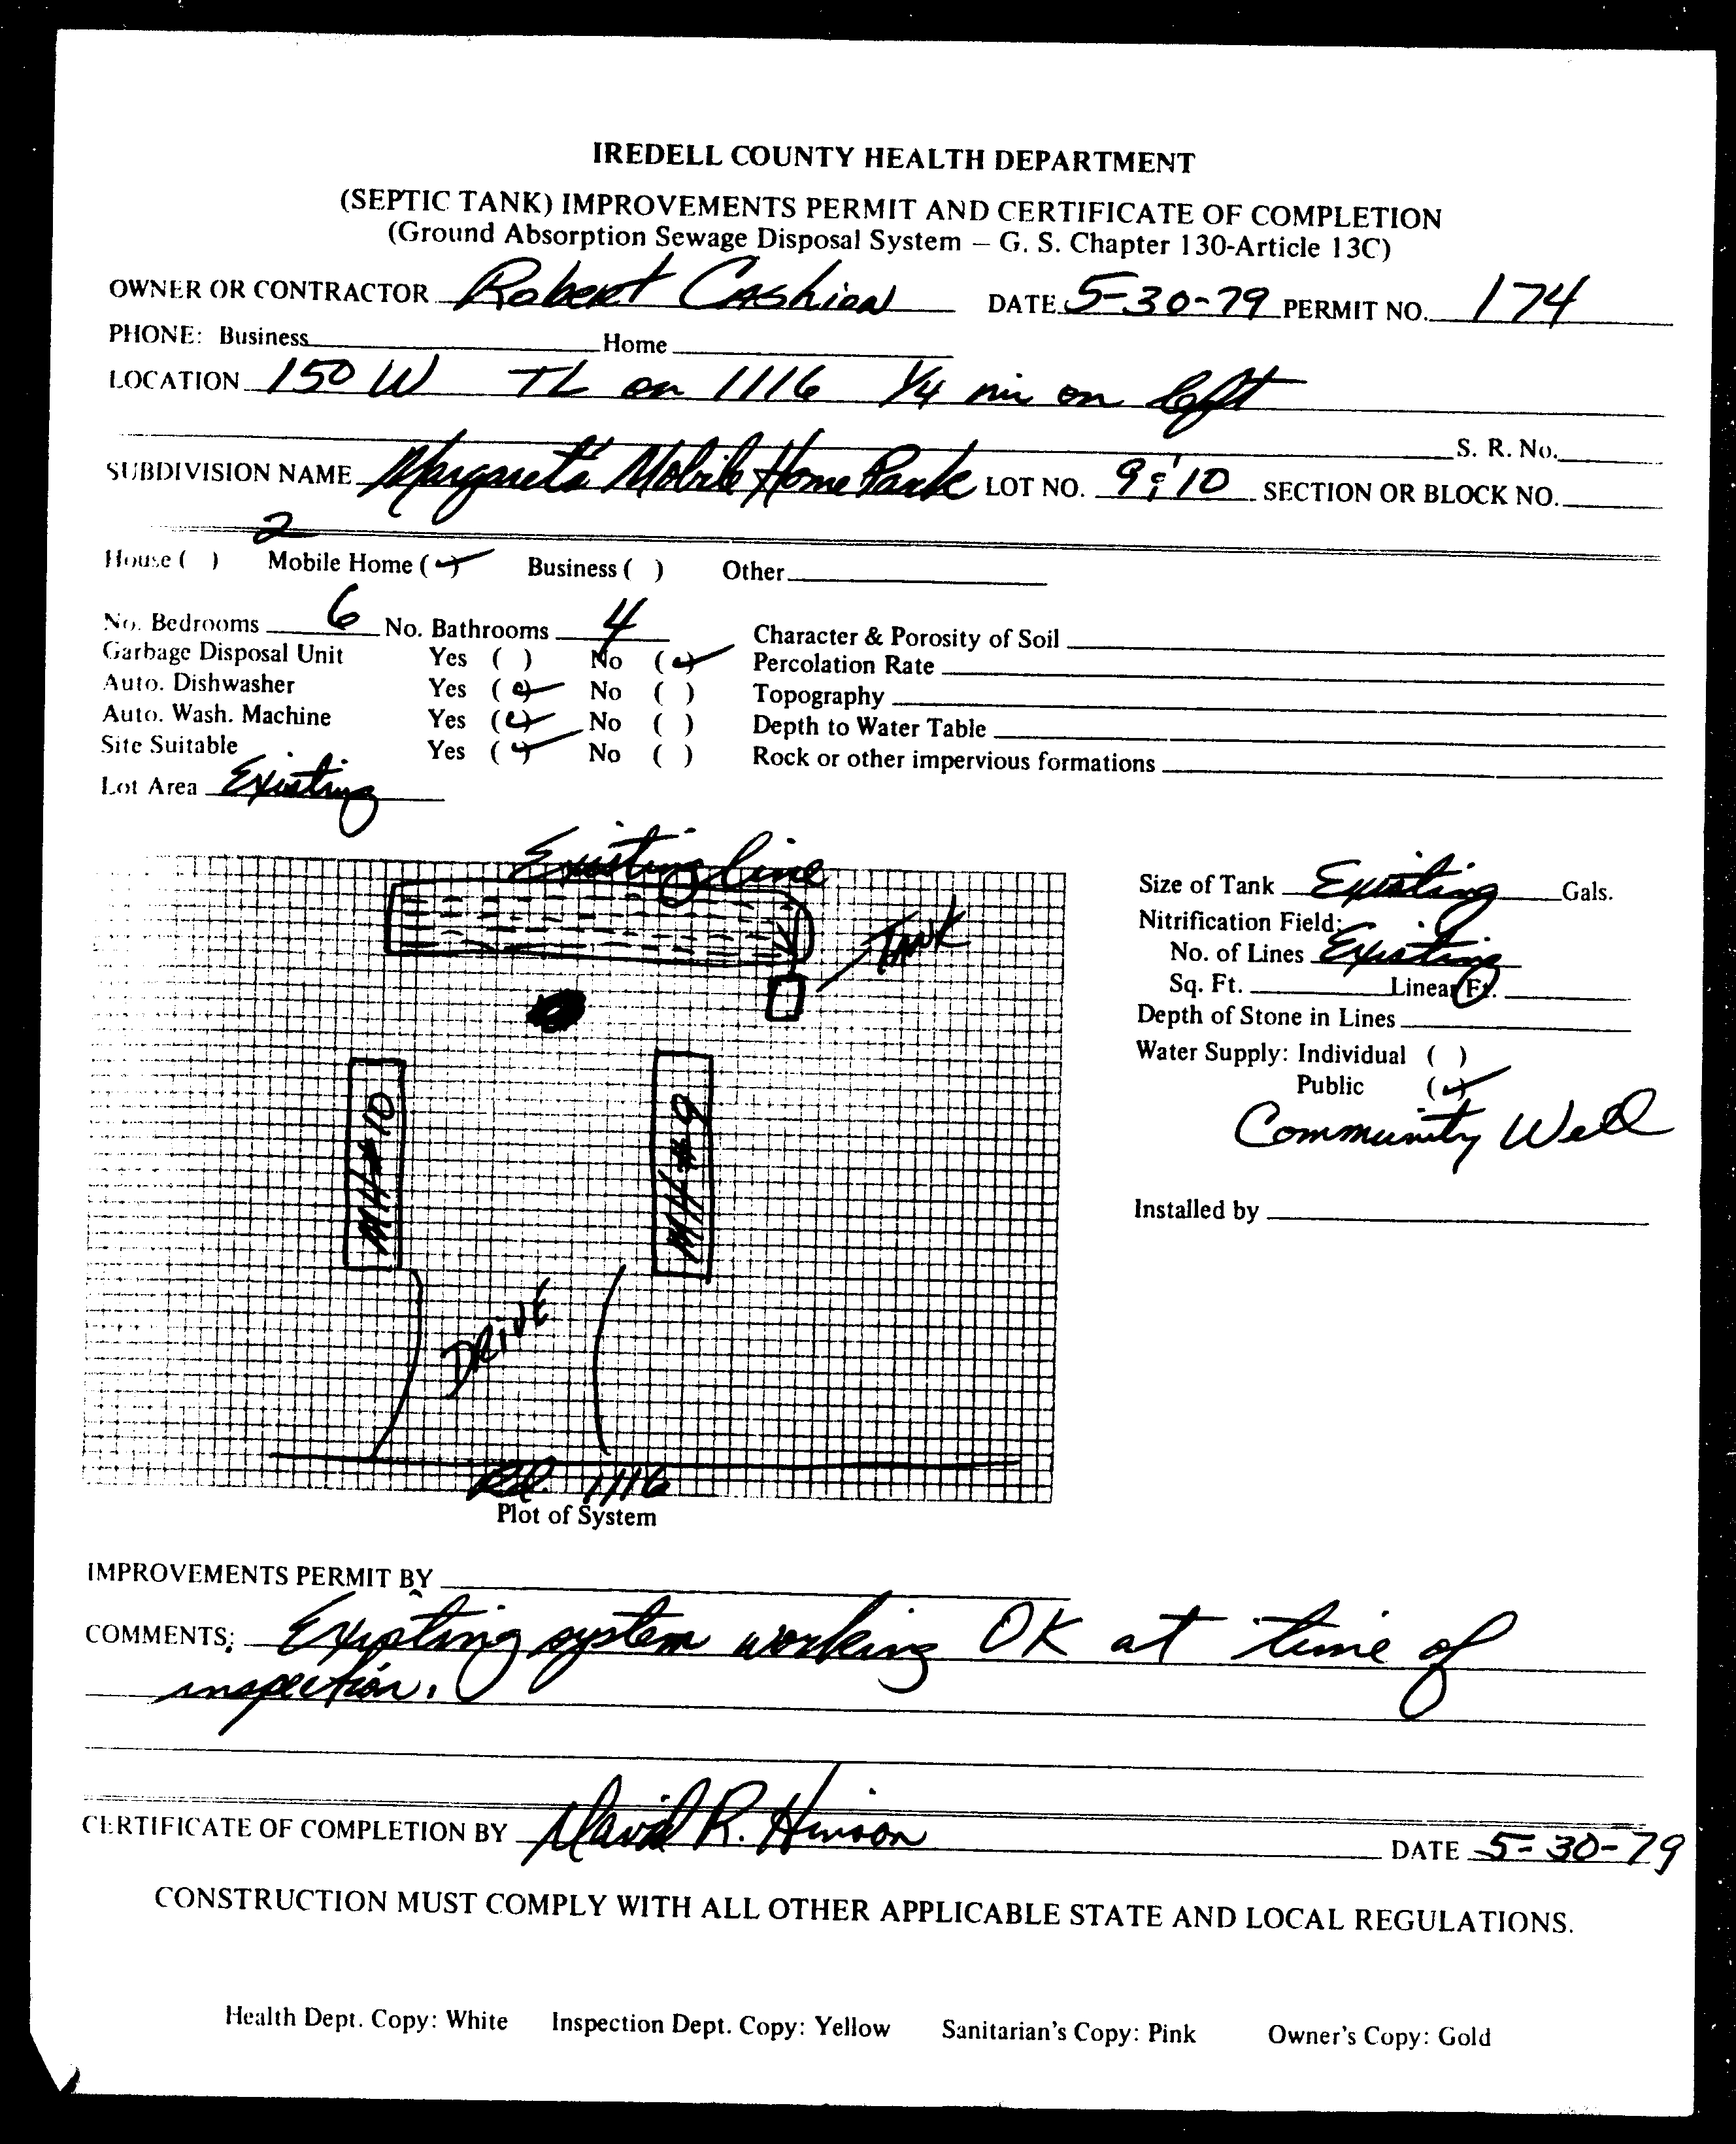 IREDELL COUNTY HEALTH DEPARTMENT
(SEPTIC TANK) IMPROVEMENTS PERMIT AND CERTIFICATE OF COMPLETION
(Ground Absorption Sewage Disposal System – G. S. Chapter 130-Article 13C)
OWNER OR CONTRACTOR Robert Cashion DATE 5-30-79 PERMIT NO. 174
PHONE: Business Home
LOCATION 150 W TL on 1116 1/4 mi on left
S. R. No.
SUBDIVISION NAME Margaret's Mobile Home Park LOT NO. 9 & 10 SECTION OR BLOCK NO.
2
House ( ) Mobile Home (✓) Business ( ) Other
No. Bedrooms 6 No. Bathrooms 4 Character & Porosity of Soil
Garbage Disposal Unit Yes ( ) No (✓) Percolation Rate
Auto. Dishwasher Yes (✓) No ( ) Topography
Auto. Wash. Machine Yes (✓) No ( ) Depth to Water Table
Site Suitable Yes (✓) No ( ) Rock or other impervious formations
Lot Area Existing
Existing line
TANK
MH #10
MH #9
DRIVE
Rd. 1116
Plot of System
Size of Tank Existing Gals.
Nitrification Field:
No. of Lines Existing
Sq. Ft. Linear Ft.
Depth of Stone in Lines
Water Supply: Individual ( )
Public (✓)
Community Well
Installed by
IMPROVEMENTS PERMIT BY
COMMENTS: Existing system working OK at time of
inspection.
CERTIFICATE OF COMPLETION BY David R. Hinson DATE 5-30-79
CONSTRUCTION MUST COMPLY WITH ALL OTHER APPLICABLE STATE AND LOCAL REGULATIONS.
Health Dept. Copy: White Inspection Dept. Copy: Yellow Sanitarian's Copy: Pink Owner's Copy: Gold